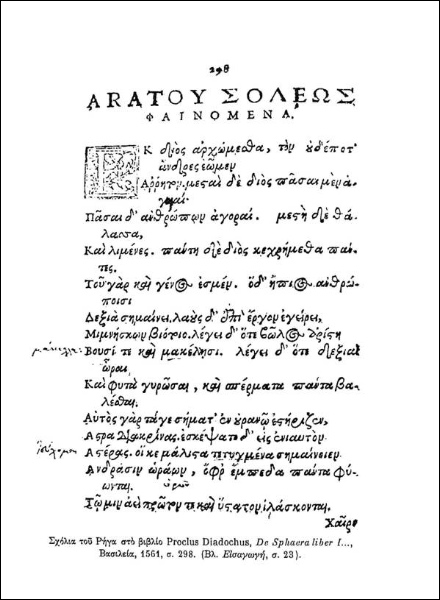 298
ΑΡΑΤΟΥ ΣΟΛΕΩΣ
ΦΑΙΝΟΜΕΝΑ.
ΕΚ διὸς ἀρχώμεσθα, τὸν οὐδέποτ᾽
ἄνδρες ἐῶμεν
Ἄρρητον. μεσταὶ δὲ διὸς πᾶσαι μὲν ἀ-
γυιαὶ·
Πᾶσαι δ᾽ ἀνθρώπων ἀγοραί. μεστὴ δὲ θά-
λασσα,
Καὶ λιμένες. πάντη δὲ διὸς κεχρήμεθα πάν-
τες.
Τοῦ γὰρ καὶ γένος ἐσμέν. ὁ δ᾽ ἤπιος ἀνθρώ-
ποισι
Δεξιὰ σημαίνει, λαοὺς δ᾽ ἐπὶ ἔργον ἐγείρει,
Μιμνήσκων βιότοιο. λέγει δ᾽ ὅτε βῶλος ἀρίστη
Βουσί τε καὶ μακέλησι. λέγει δ᾽ ὅτε δεξιαὶ
ὧραι
Καὶ φυτὰ γυρῶσαι, καὶ σπέρματα πάντα βα-
λέσθαι.
Αὐτὸς γὰρ τάγε σήματ᾽ ἐν οὐρανῷ ἐστήριξεν,
Ἄστρα διακρίνας. ἐσκέψατο δ᾽ εἰς ἐνιαυτὸν
Ἀστέρας. οἵ κε μάλιστα τετυγμένα σημαίνοιεν
Ἀνδράσιν ὡράων, ὄφρ᾽ ἔμπεδα πάντα φύ-
ωνται.
Τῷ μιν ἀεὶ πρῶτον τε καὶ ὕστατον ἱλάσκονται.
Χαῖρε
Σχόλια τοῦ Ρήγα στὸ βιβλίο Proclus Diadochus, De Sphaera liber I...,
Βασιλεία, 1561, σ. 298. (Βλ. Εἰσαγωγή, σ. 23).